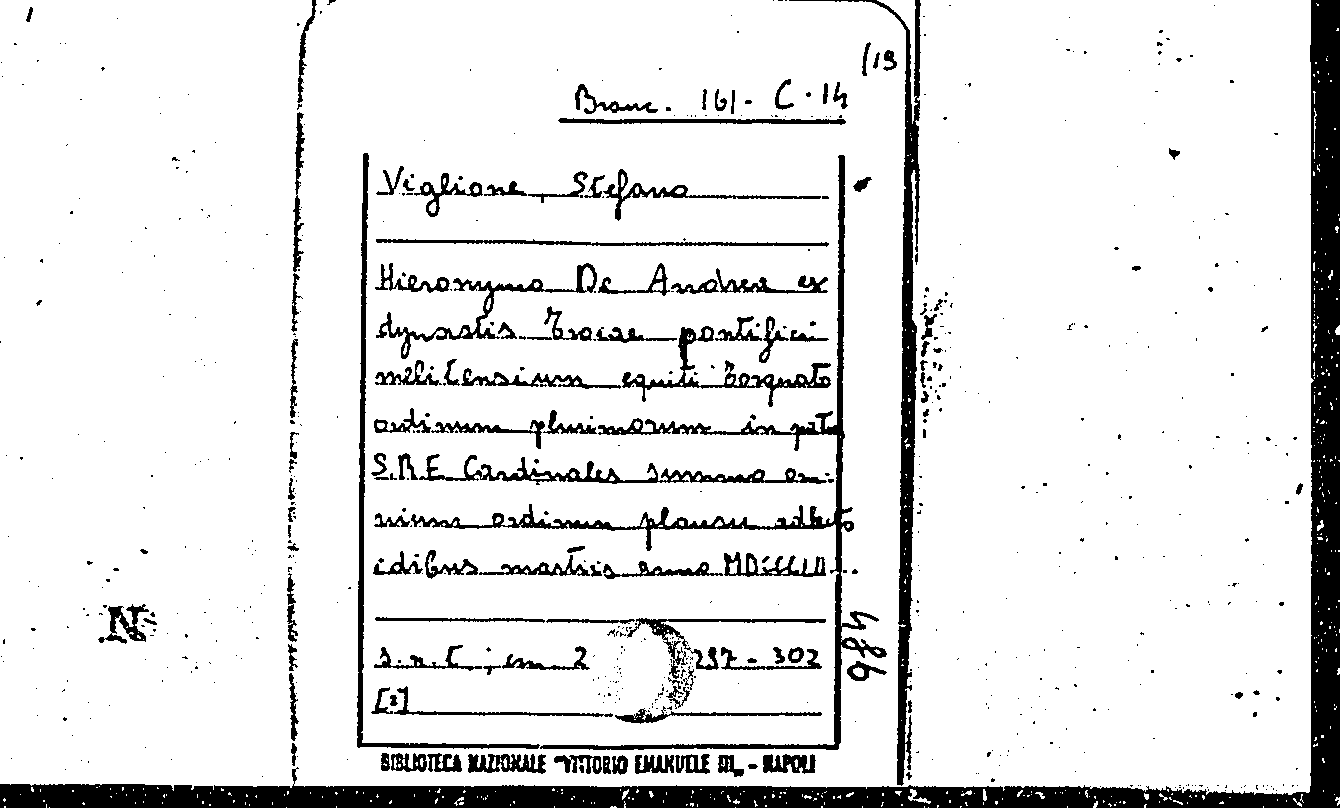 (19
Branc. 161- C.14
Viglione, Stefano
Hieronymo De Andrea ex
dynastis Trocae pontifici
melitensium equiti Torquato
ordinum plurimorum in patr
S.R.E Cardinales summo om-
nium ordinum plausu adlecto
idibus martiis anno MDCCCLII.
s.n.t ; cm 2 297-302
[2]
984
N
BIBLIOTECA NAZIONALE "VITTORIO EMANUELE III„ - NAPOLI